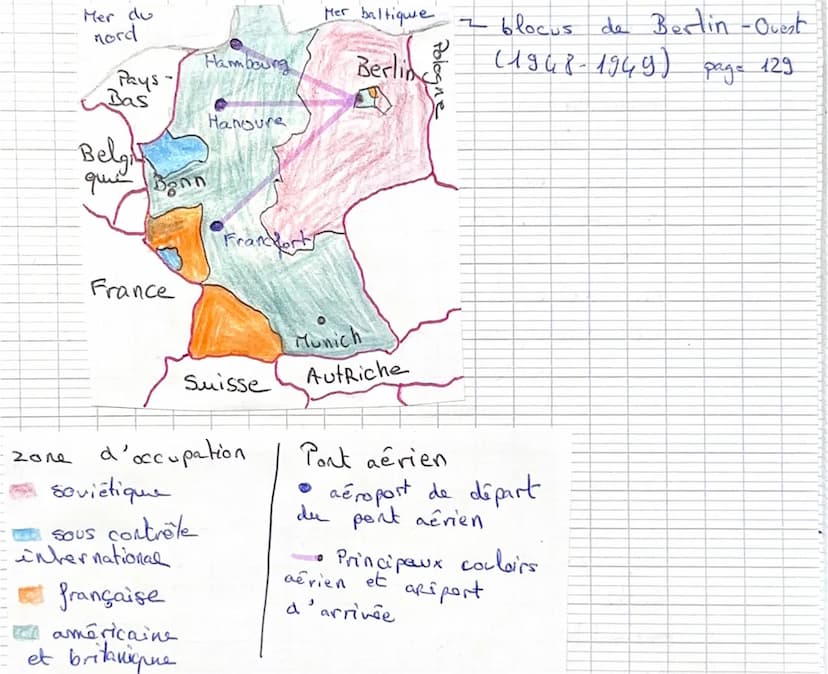 Mer du
nord
Mer baltique
Pologne
Hambourg
Berlin
Pays-
Bas
Hanovre
Belgi
que
Bonn
Francfort
France
Munich
Suisse
AUTRiche
blocus de Berlin-Ouest
(1948-1949) page 129
zone d'occupation
soviétique
sous contrôle
international
française
américaine
et britanique
Pont aérien
aéroport de départ
du pont aérien
Principaux couloirs
aérien et aréiport
d'arrivée